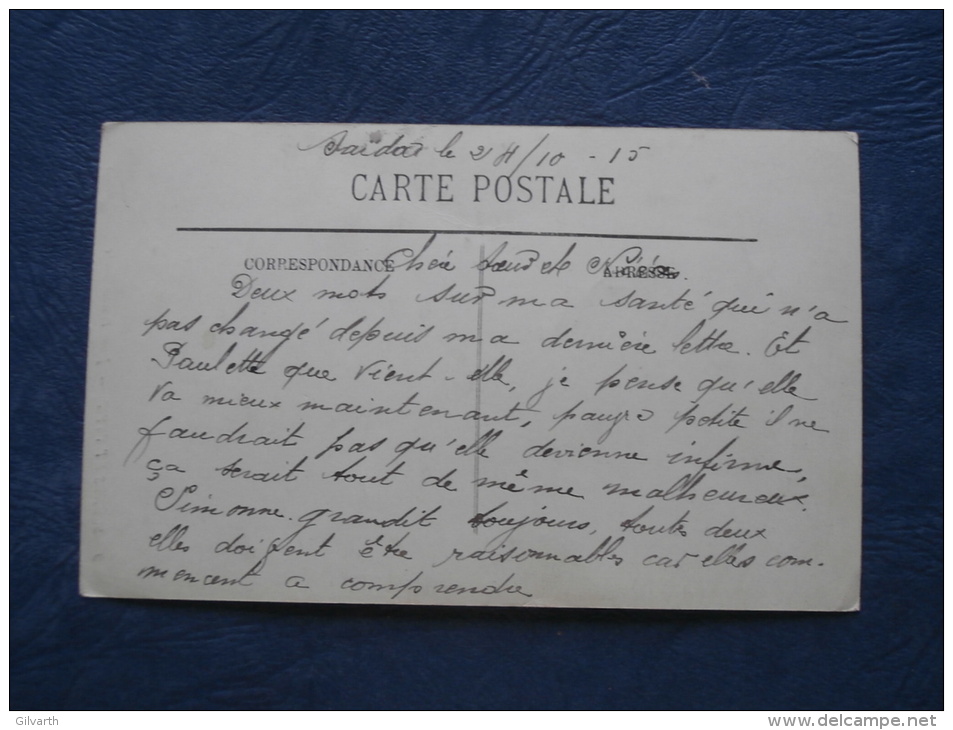 le 28/10 - 15
CARTE POSTALE
CORRESPONDANCE Chère soeur et Nièces.
ADRESSE
Deux mots sur ma santé qui n'a
pas changé depuis ma dernière lettre. Et
Paulette que vient-elle, je pense qu'elle
va mieux maintenant, pauvre petite il ne
faudrait pas qu'elle devienne infirme,
ça serait tout de même malheureux.
Simonne grandit toujours, toutes deux
elles doivent être raisonnables car elles com-
mencent a comprendre
Gilvarth
delcampe.net